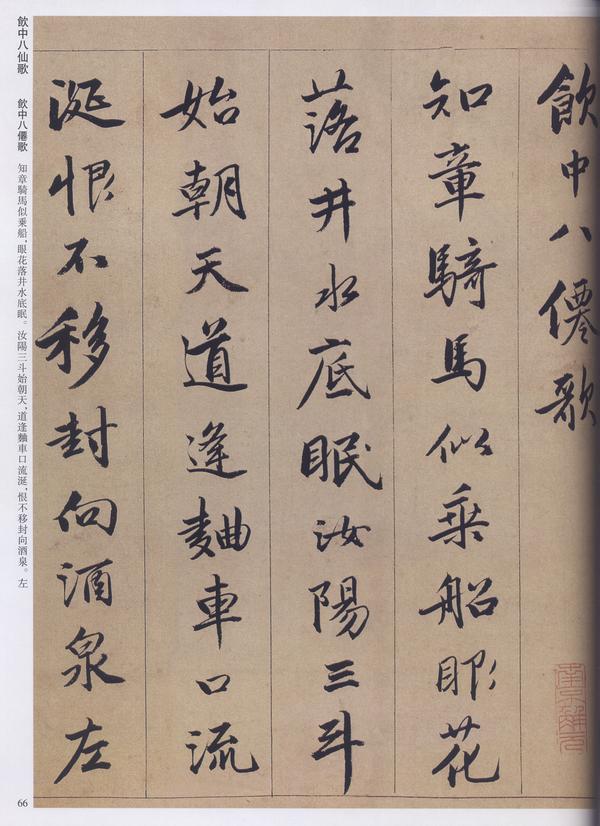 飲中八僊歌
知章騎馬似乘船眼花
落井水底眠汝陽三斗
始朝天道逢麯車口流
涎恨不移封向酒泉左
南京解元
飲中八仙歌
飲中八僊歌 知章騎馬似乘船，眼花落井水底眠。汝陽三斗始朝天，道逢麯車口流涎，恨不移封向酒泉。左
66